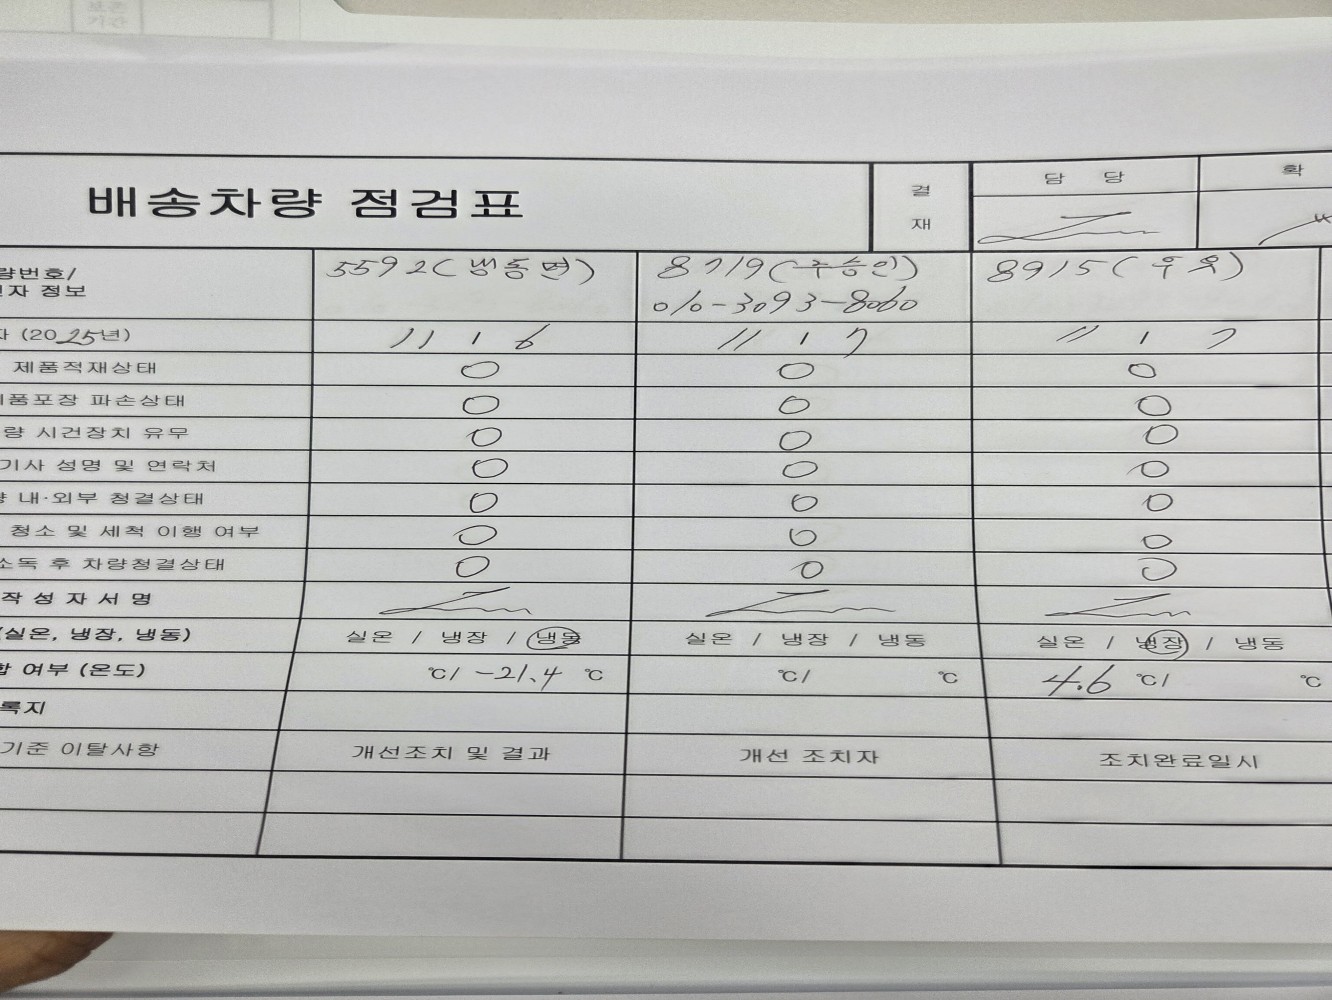 보존
기간
배송차량 점검표
결
재
담 당
확
량번호/
자 정보
5592(냉동면)
8719(주승인)
010-3093-8060
8915(우유)
자 (2025년)
11 1 6
11 1 7
11 1 7
제품적재상태 O O O
제품포장 파손상태 O O O
량 시건장치 유무 O O O
기사 성명 및 연락처 O O O
량 내·외부 청결상태 O O O
청소 및 세척 이행 여부 O O O
소독 후 차량청결상태 O O O
작 성 자 서 명
(실온, 냉장, 냉동) 실온 / 냉장 / 냉동 실온 / 냉장 / 냉동 실온 / 냉장 / 냉동
합 여부 (온도) ℃/ -21.4 ℃ ℃/ ℃ 4.6 ℃/ ℃
록지
기준 이탈사항 개선조치 및 결과 개선 조치자 조치완료일시